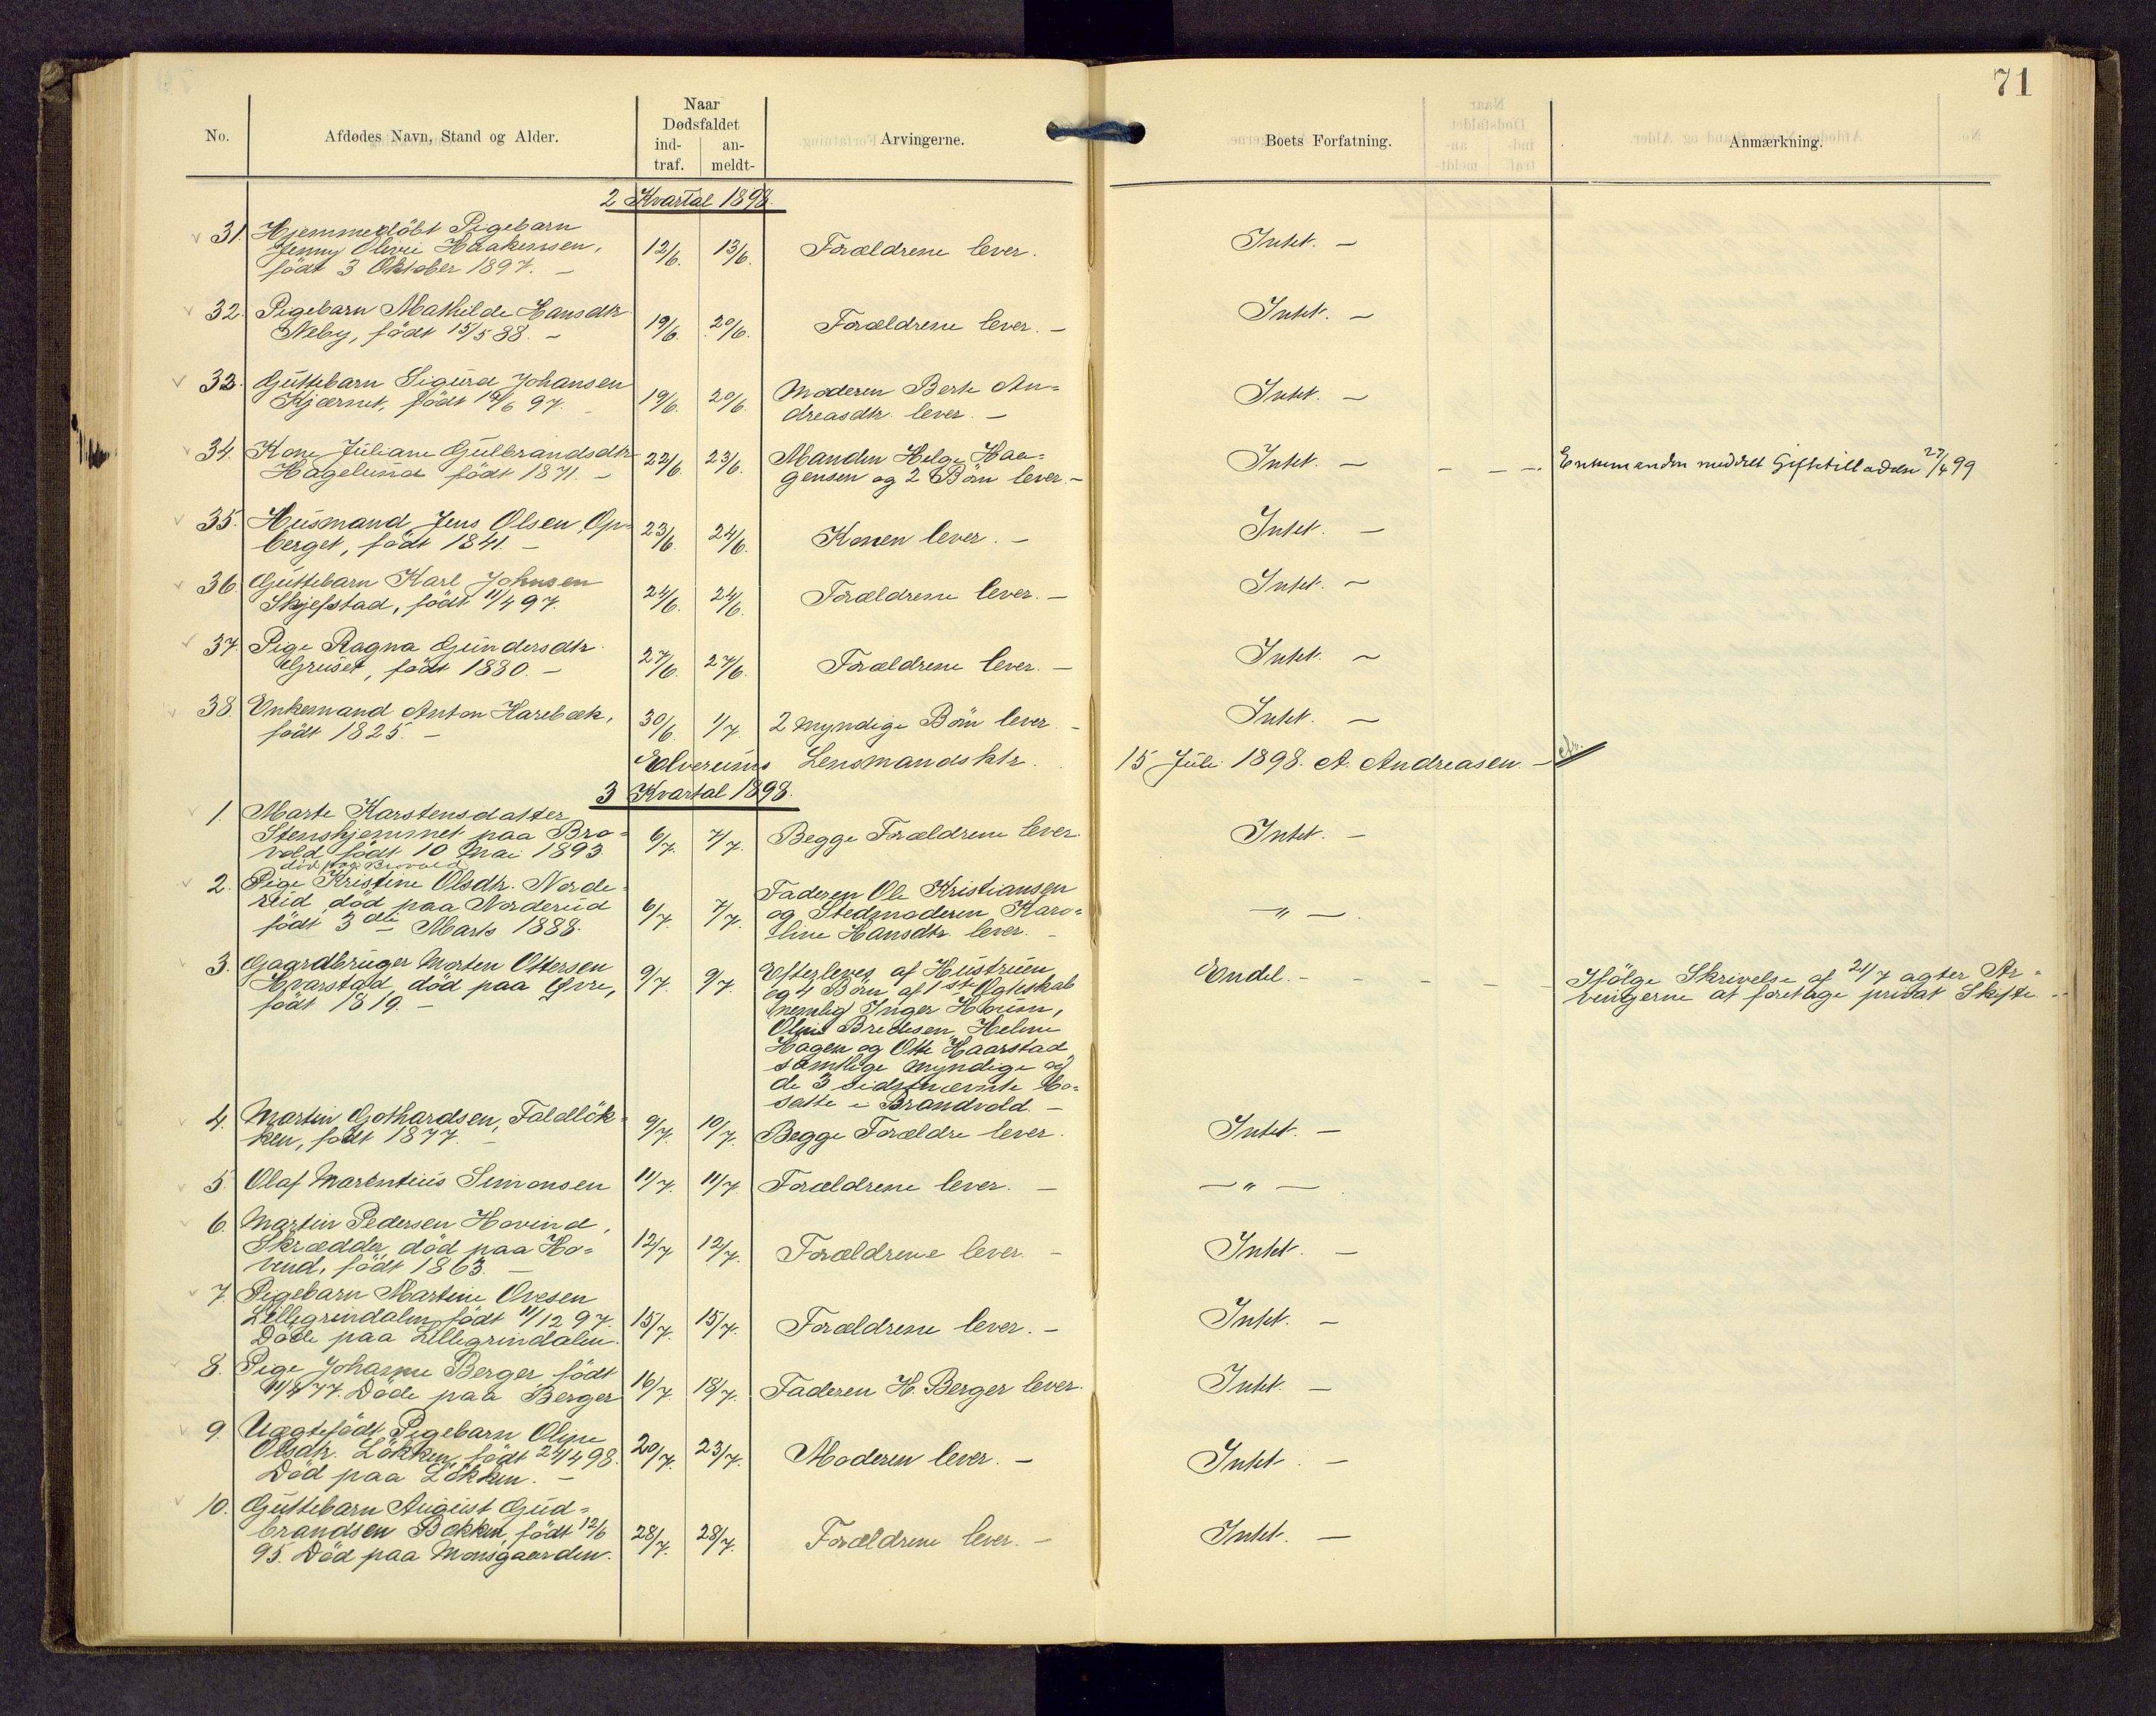 71
No.
Afdødes Navn, Stand og Alder.
Naar
Dødsfaldet
ind-
traf.
an-
meldt-
Arvingerne.
Boets Forfatning.
Anmærkning.
2 Kvartal 1898.
31. Hjemmedöbt Pigebarn
Jenny Olivie Haakensen,
födt 3 Oktober 1897. –
12/6. 13/6. Forældrene lever. Intet. –
32. Pigebarn Mathilde Hansdtr
Neby, födt 15/5 88. –
19/6. 20/6. Forældrene lever. – Intet. –
33. Guttebarn Sigurd Johansen
Kjærnet, födt /6 97.
19/6. 20/6. Moderen Berte An=
dreasdtr. lever. – Intet. –
34. Kone Juliane Gulbrandsdtr
Hagelund födt 1871. –
22/6. 23/6. Manden Helge Haa=
gensen og 2 Börn lever. – Intet. – – – – Enkemanden meddelt Giftetilladelse 27/4 99
35. Husmand Jens Olsen Op=
berget, födt 1841. –
23/6. 24/6. Konen lever. – Intet. –
36. Guttebarn Karl Johnsen
Skjefstad, födt 11/4 97.
24/6. 24/6. Forældrene lever. – Intet. –
37. Pige Ragna Gundersdtr.
Gruset, födt 1880. –
27/6. 27/6. Forældrene lever. – Intet. –
38. Enkemand Anton Harebæk,
födt 1825. –
30/6. 1/7. 2 myndige Börn lever. – Intet. –
Elverums Lensmandsktr. 15 Juli 1898. A. Andreasen. –
3 Kvartal 1898.
1. Marte Karstensdatter
Stenshjemmet paa Bro=
vold födt 10 Mai 1893
död paa Brovold
6/7. 7/7. Begge Forældrene lever. Intet. –
2. Pige Kristine Olsdtr. Norde=
rud, död paa Norderud
födt 3die Marts 1888.
6/7. 7/7. Faderen Ole Kristiansen
og Stedmoderen Karo=
line Hansdtr. lever. – – " –
3. Gaardbruger Morten Ottersen
Hvarstad, död paa Evre,
födt 1819. –
9/7. 9/7. Efterleves af Hustruen
og 4 Börn af 1ste Ægteskab
nemlig Inger Hvum,
Bredesen, Helene
Hagen og Otte Haarstad
samtlige myndige og
de 3 sidstnævnte bo=
satte i Brandvold. –
Endel. – – – – – Ifölge Skrivelse af 21/7 agter Ar=
vingerne at foretage privat Skifte. –
4. Martin Gothardsen, Faldlök=
ken, födt 1877. –
9/7. 10/7. Begge Forældre lever. Intet. –
5. Olaf Marentius Simonsen 11/7. 11/7. Forældrene lever. – – " –
6. Martin Pedersen Hovind,
Skrædder, död paa Ho=
vend, födt 1863. –
12/7. 12/7. Forældrene lever. – Intet. –
7. Pigebarn Martine Ovesen
Lillegrindalen födt 11/12 97.
Döde paa Lillegrindalen.
15/7. 15/7. Forældrene lever. – Intet. –
8. Pige Johanne Berger födt
11/4 77. Döde paa Berger
16/7. 18/7. Faderen H. Berger lever. Intet. –
9. Uægtefödt Pigebarn Oline
Olsdtr. Lökken, födt 24/4 98.
Död paa Lökken. –
20/7. 23/7. Moderen lever. – Intet. –
10. Guttebarn August Gud=
brandsen Bakken födt 12/6
95. Död paa Monsgaarden.
28/7. 28/7. Forældrene lever. – Intet. –